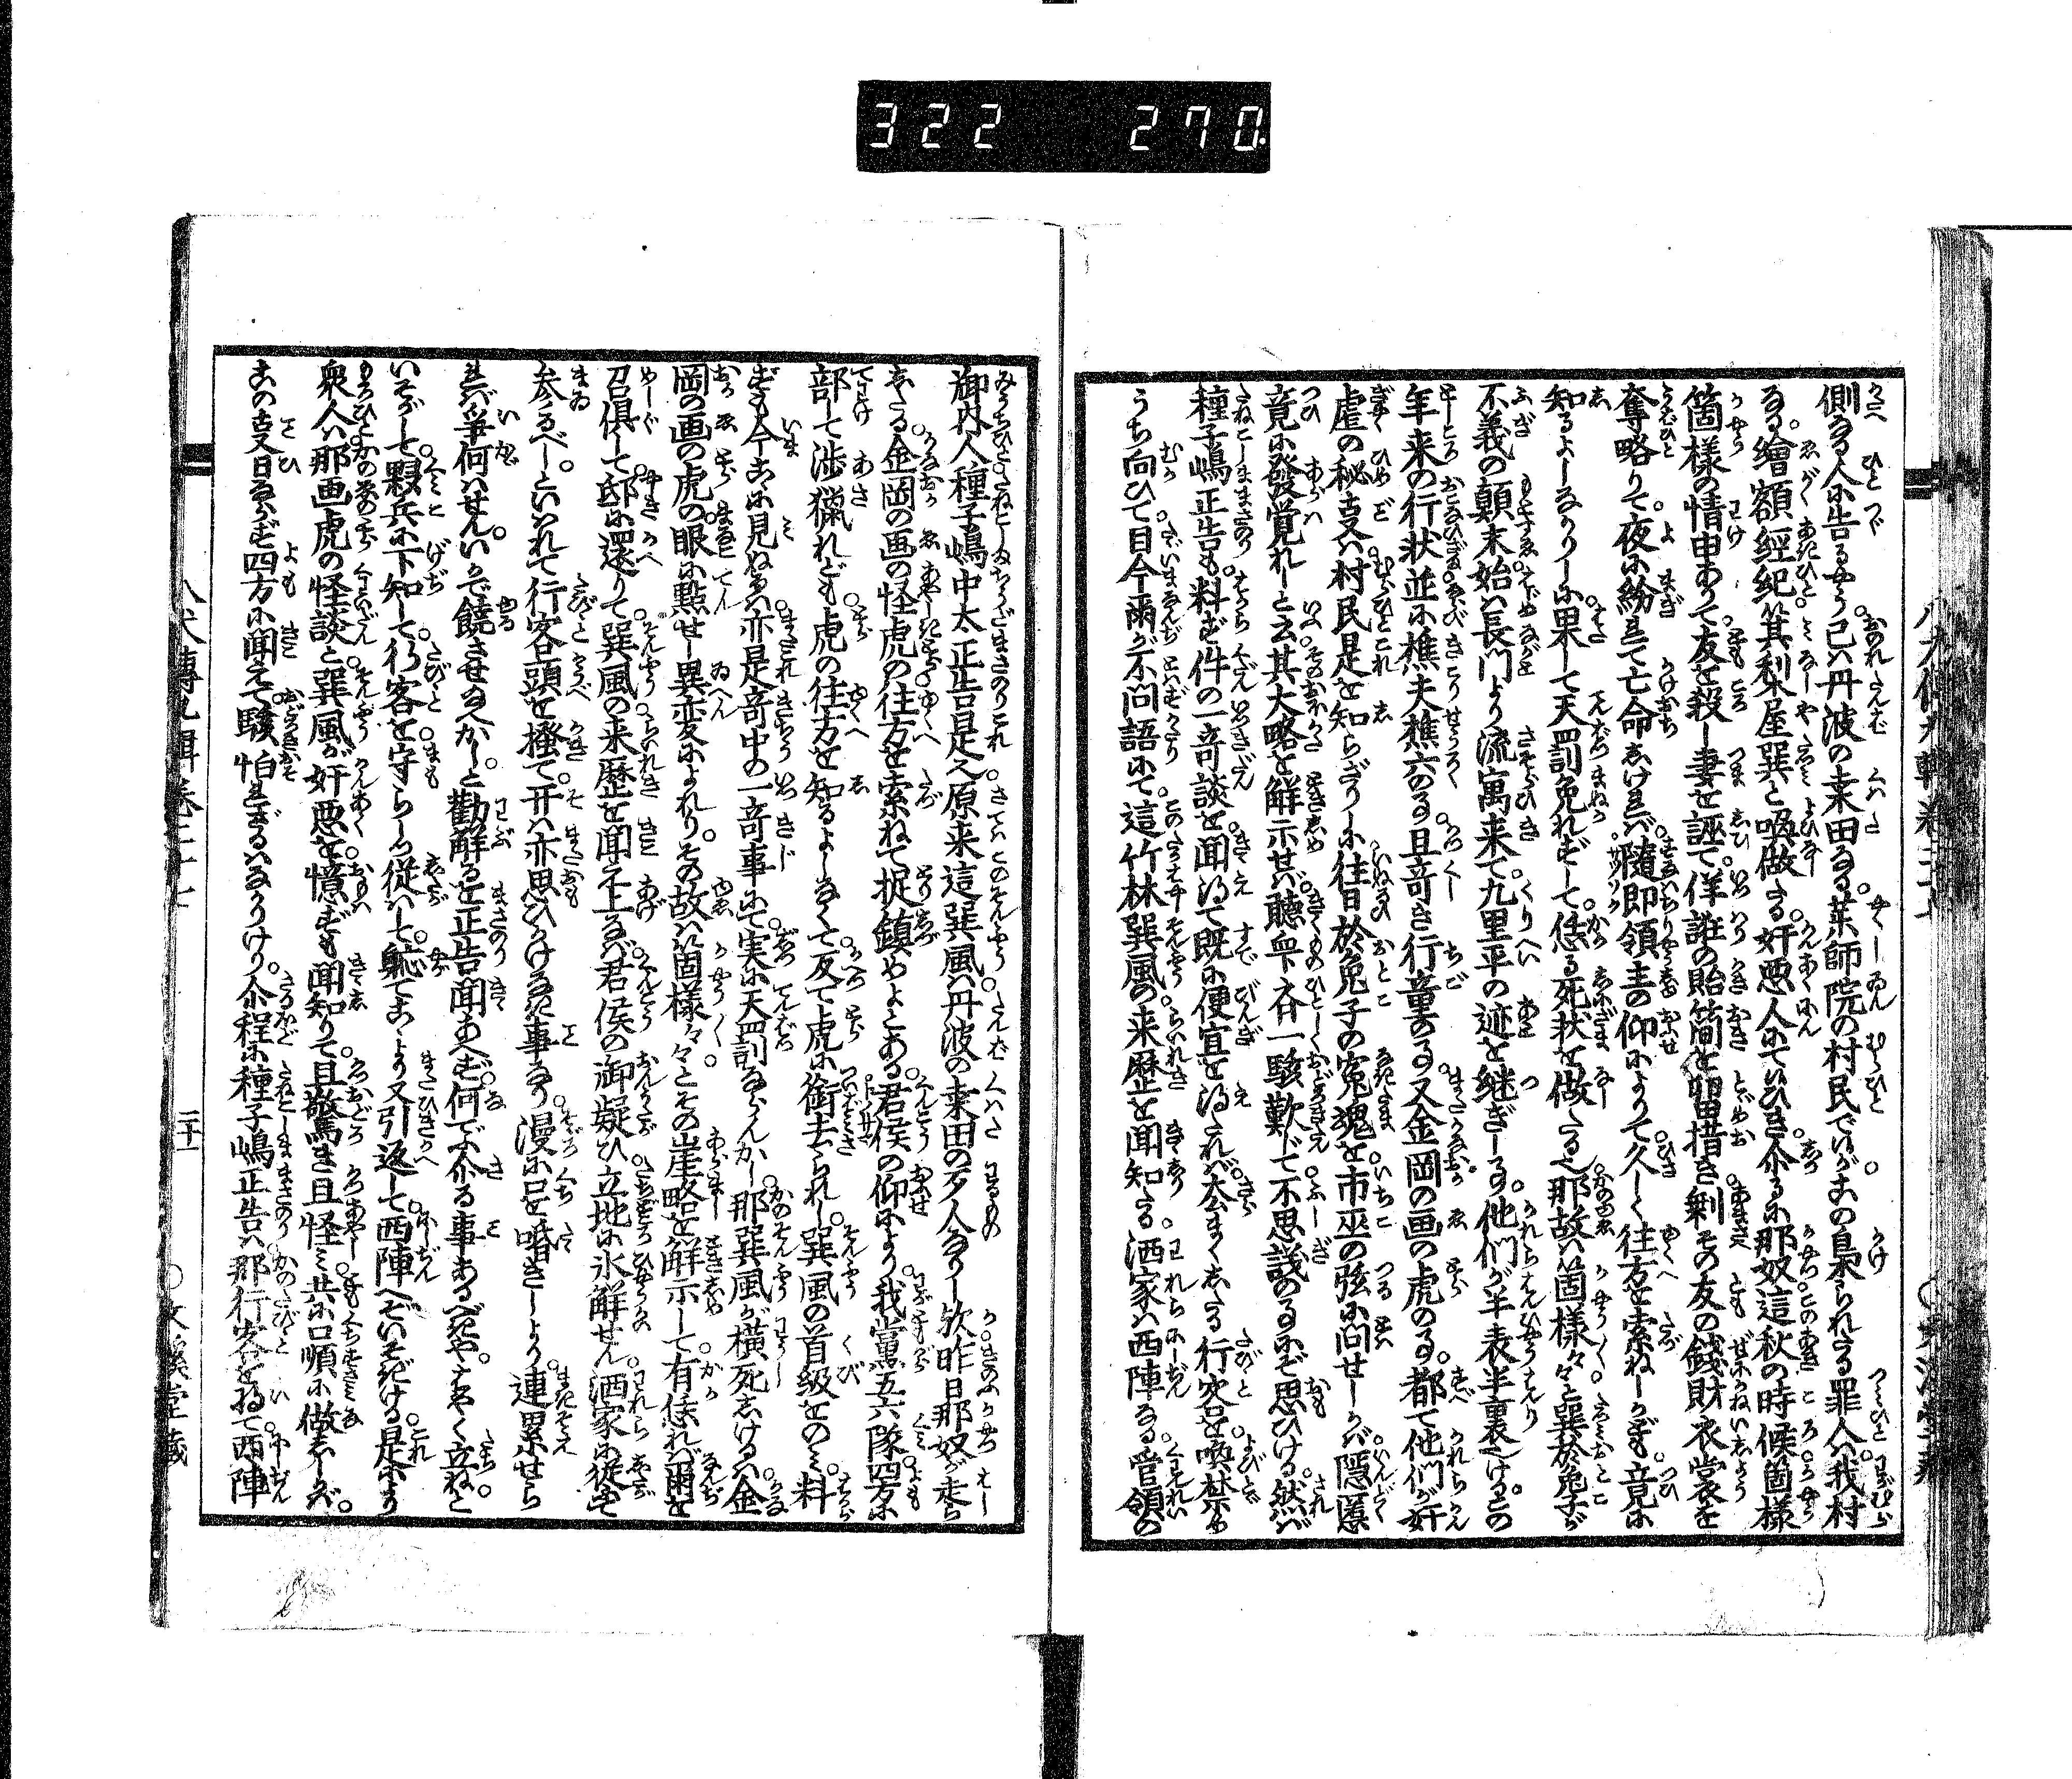 322 270
側なる人に告るやう己は丹波の桒田なる薬師院の村民でいがこの梟られたる罪人は我村
なる繪額經紀箕利屋巽と喚做たる奸悪人にていひき尒るに那奴這秋の時候箇様
箇様の情由ありて友を殺し妻を誣て佯誑の貽簡を畄措き剰その友の錢財衣裳を
奪略りて夜に紛れて亡命しければ隨即領主の仰によりて久しく往方を索ねしかども竟に
知るよしなかりしに果して天罰免れずして恁る死状を做たる也那故は箇様々々と巽於兔子が
不義の顛末始は長門より流寓来て九里平の迹を継ぎし事他們が半表半裏へけるこの
年来の行状並に樵夫樵六の事且竒き行童の事又金岡の画の虎の事都て他們が奸
虐の秘事は村民是を知らざりしに往日於兔子の寃魂を市巫の弦に問せしかば隠慝
竟に發覚れしと云其大略を解示せば聽衆下斉一駭歎じて不思議の事にぞ思ひける然ば
種子嶋正告も料ず件の一竒談を聞得て既に便宜を得たれば太まくしたる行客を喚禁め
うち向ひて目今爾が不問語にて這竹林巽風の来歴を聞知たる洒家は西陣なる管領の
御内人種子嶋中太正告是也原来這巽風は丹波の桒田の歹人なりし欤昨日那奴が走ら
したる金岡の画の怪虎の往方を索ねて捉鎮めよとある君侯の仰により我黨五六隊四方に
部して渉獵れども虎の往方を知るよしなくて反て虎に銜去られし巽風の首級をのミ料
ずも今こゝに見ぬるは亦是竒中の一竒事にて実に天罰ならんかし那巽風が横死しけるは金
岡の画の虎の眼に點せし異変によれりその故は箇様々々とその崖略を解示して有恁れば爾を
召俱して邸に還りて巽風の来歴を聞え上なば君侯の御疑ひ立地に氷解せん洒家に從て
参るべしといはれて行客頭を搔て开は亦思ひかけなき事なり漫に口を噆きしより連累せら
れば争何はせんいかで饒させ給へかしと勸解るを正告聞あへず何でふ尒る事あるべきやとく立ねと
いそがして夥兵に下知して行客を守らし從はして軈てこゝより又引返して西陣へぞいそぎける是より
衆人は那画虎の怪談と巽風が奸悪を憶ずも聞知りて且驚き且怪ミ共に口順に做しゝかば
この事又日ならず四方に聞えて駭怕れざるはなかりけり尒程に種子嶋正告は那行客を将て西陣
八犬傳九輯卷二十七
二十一
〇文溪堂藏